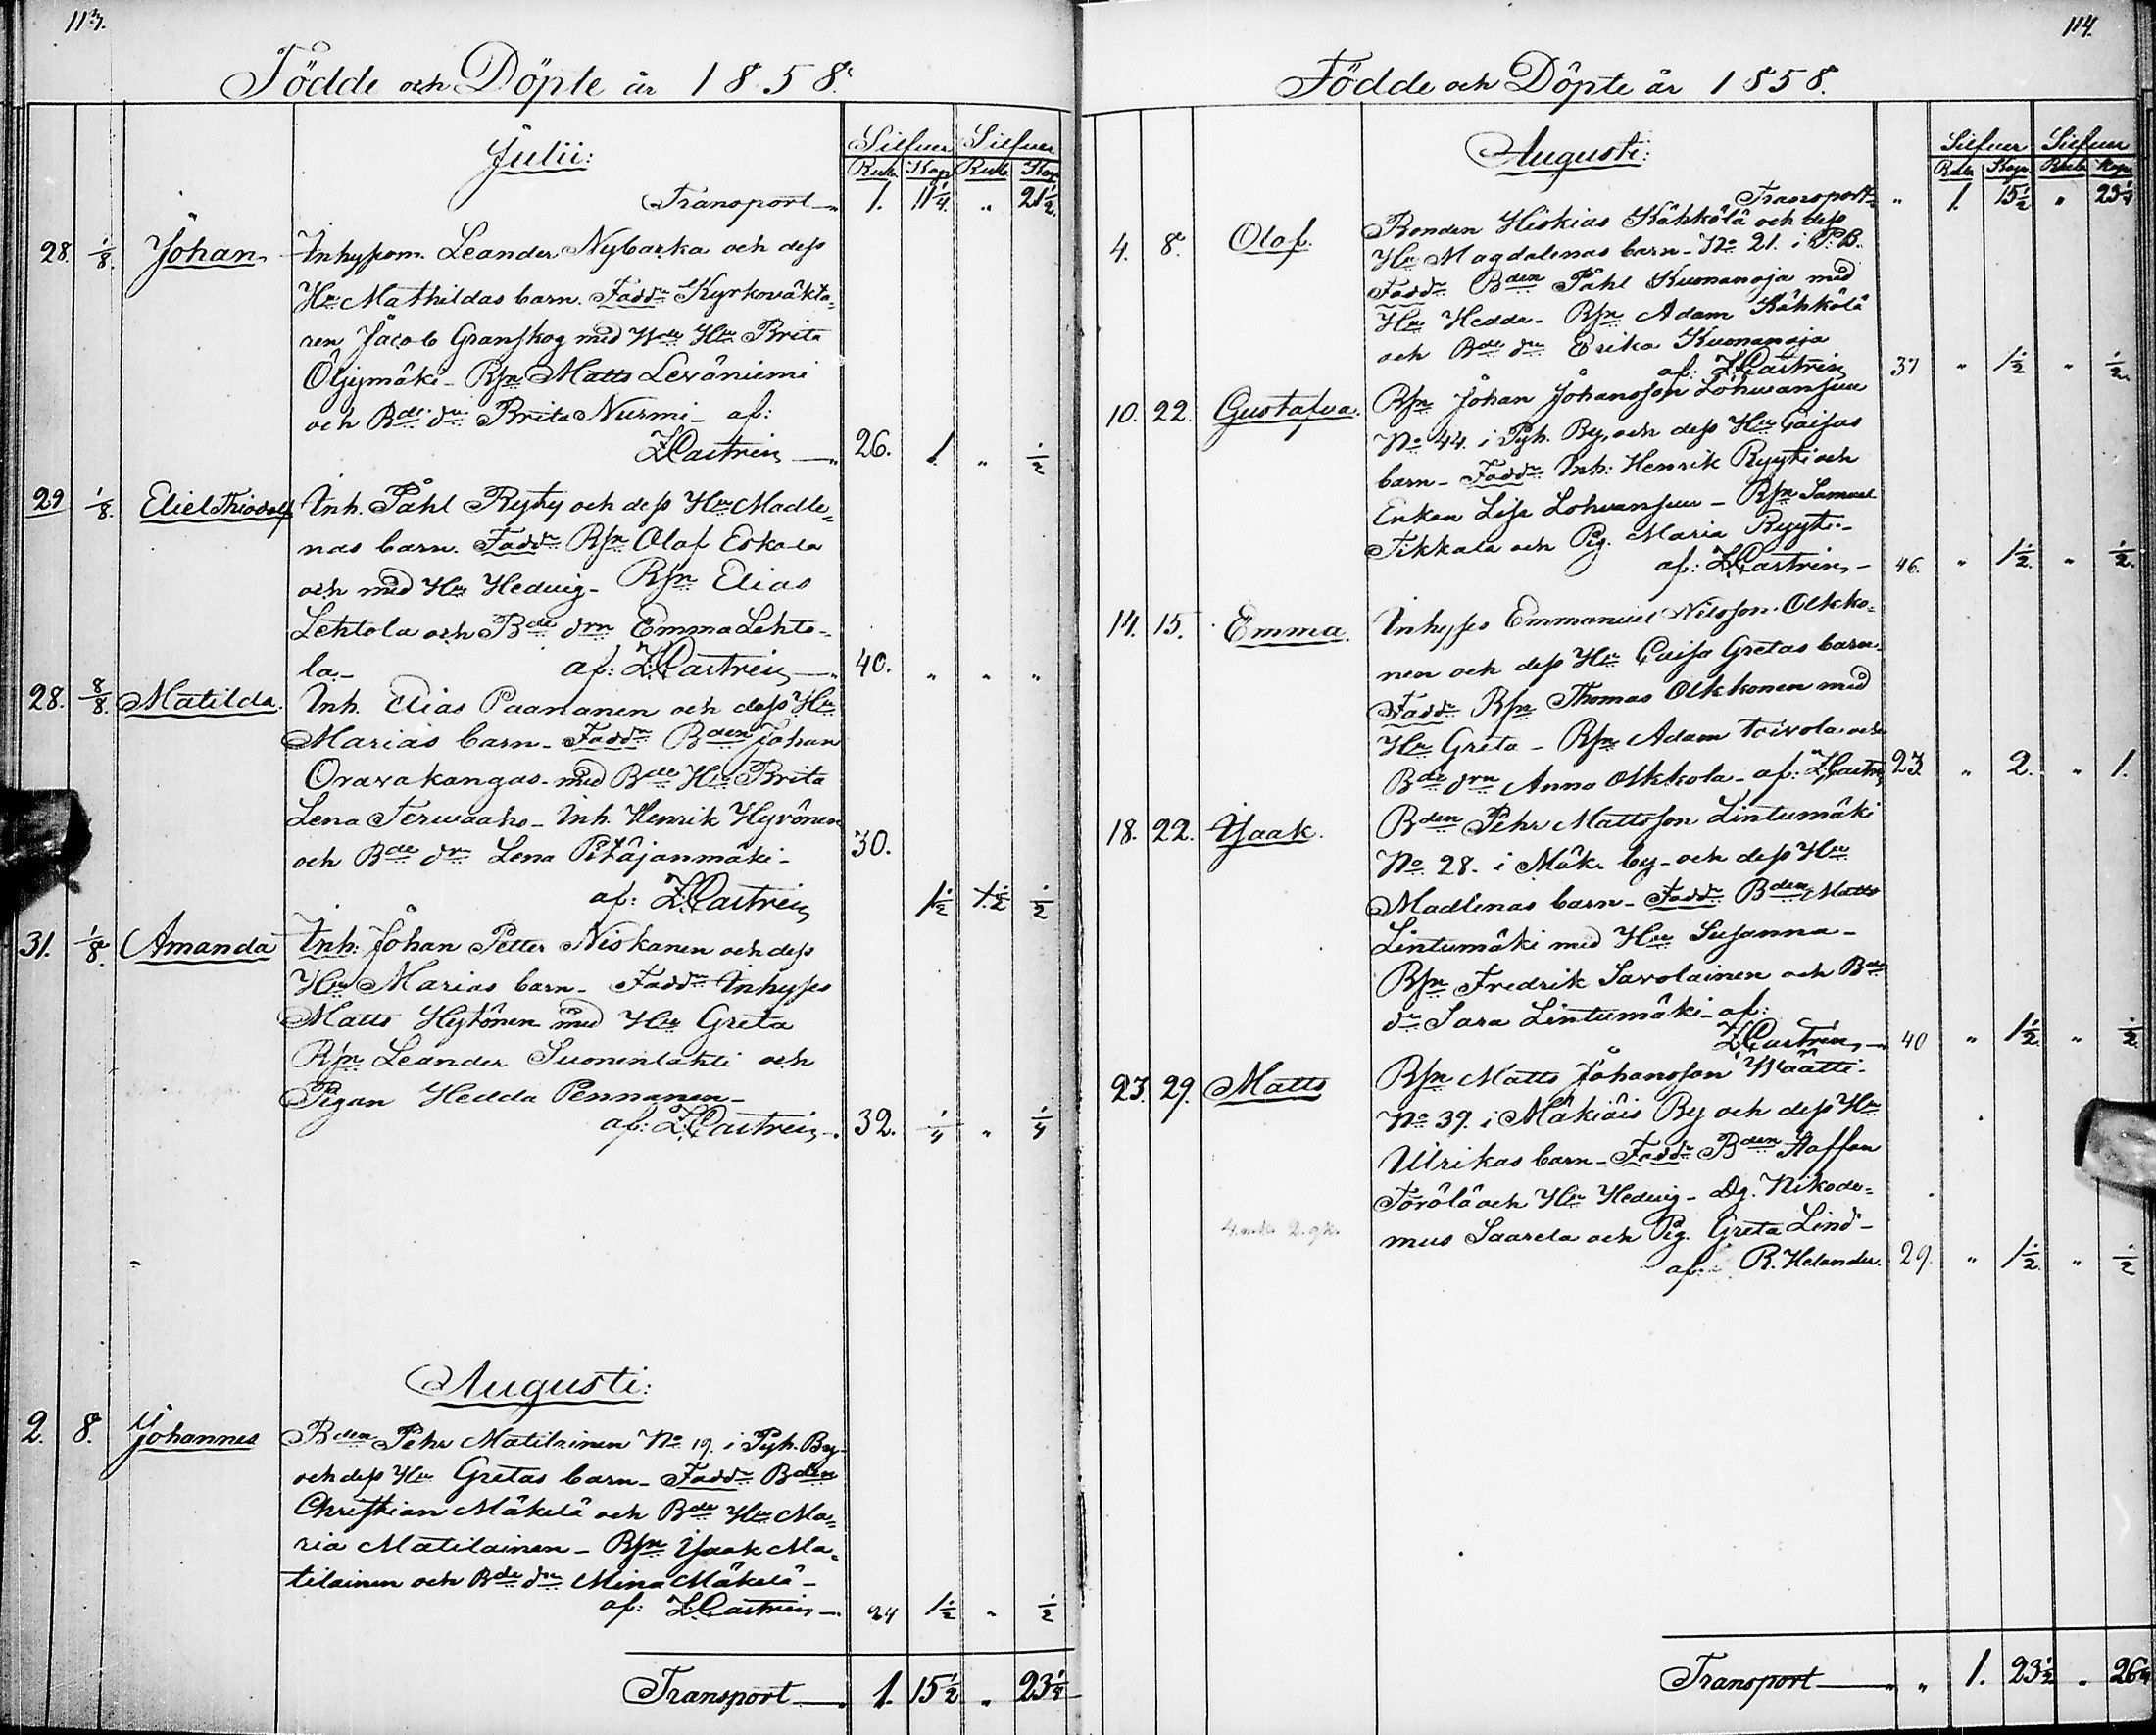 113.
Födde och Döpte år 1858.
Julii:
Silfuer Silfuer
Rub. Kop Rub Kop
Transport 1. 11 1/4. " 21 1/2.
28. 1/8. Johan Inhysom. Leander Nybacka och dess
Hu Mathildas barn. Faddr Kyrkoväkta=
ren Jacob Granskog med Hu Brita
Öljymäki - Bsn Matts Leväniemi
och Bde dr Brita Nurmi - af:
Z.Castrén 26. 1. " 1/2
29 1/8. Eliel Thiodolf Inh. Påhl Ryhy och dess Hu Madle=
nas barn. Faddr Bsn Olof Eskola
och med Hu Hedvig - Bsn Elias
Lehtola och Bde drn Emma Lehto-
la - af: Z.Castrén 40. " " "
28. 8/8. Matilda. Inh. Elias Paananen och dess Hu
Marias barn - Faddr Bden Johan
Oravakangas - med Bde Hu Brita
Lena Terwaaho - Inh. Henrik Hyvönen
och Bde dr Lena Pitäjänmäki - 30.
af: Z.Castrén 1 1/2 1/2 1/2
31. 1/8. Amanda Inh: Johan Petter Niskanen och dess
Hu Marias barn - Faddr Inhyses
Matts Hytönen med Hu Greta
Bsn Leander Suonenlahti och
Pigan Hedda Pennanen -
af: Z.Castrén - 32. 1/4 " 1/4
Augusti:
2. 8. Johannes Bden Pehr Matilainen No 19. i Pyh. By -
och dess Hu Gretas barn - Faddr Bden
Christian Mäkelä och Bde Hu Ma=
ria Matilainen - Bsn Isaak Ma=
tilainen och Bde dr Mina Mäkelä -
af: Z.Castrén - 24 1 1/2 " 1/2
Transport 1. 15 1/2 " 23 1/4
114.
Födde och Döpte år 1858.
Augusti:
Silfuer Silfuer
Rub. Kop. Rub. Kop.
Transport " 1. 15 1/2 " 23 1/4
4. 8. Olof. Bonden Hiskias Kähkölä och dess
Hu Magdalenas barn - No 21. i P.B.
Faddr Bden Påhl Kuonanoja med
Hu Hedda - Bsn Adam Kähkölä
och Bde dr Erika Kuonanoja
af: Z.Castrén 37 " 1 1/2 " 1/2.
10. 22. Gustafva. Bsn Johan Johansson Lohvansuu
No 44. i Pyh. By, och dess Hu Caisas
barn - Faddr Inh: Henrik Ryyti och
Enkan Lisa Lohvansuu - Bsn Samuel
Tikkala och Pig. Maria Ryyti -
af: Z.Castrén - 46. " 1 1/2. " 1/2.
14. 15. Emma. Inhyses Emmanuel Nilsson Olkko=
nen och dess Hu Caisa Gretas barn.
Faddr Bsn Thomas Olkkonen med
Hu Greta - Bsn Adam Toivola och
Bde drn Anna Olkkola - af: Z.Castrén 23 " 2. " 1.
18. 22. Isaak. Bden Pehr Mattsson Lintumäki
No 28. i Mäk. by - och dess Hu
Madlenas barn - Faddr Bden Matts
Lintumäki med Hu Susanna -
Bsn Fredrik Savolainen och Bde
dr Sara Lintumäki - af:
Z.Castrén - 40 " 1 1/2. " 1/2
23. 29. Matts Bsn Matts Johansson Määtti -
No 39. i Mäkiäis By och dess Hu
Ulrikas barn - Faddr Bden Staffan
Törölä och Hu Hedvig - Dg. Nikode=
mus Saarela och Pig. Greta Lind -
af: R. Helander. 29. " 1 1/2. " 1/2
Transport " 1. 23 1/2 " 26 1/4